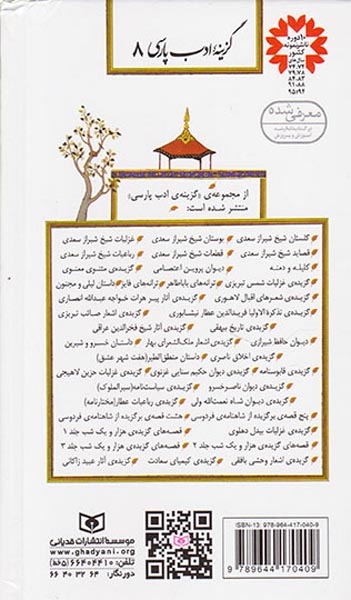 گزینهٔ ادب پارسی ۸
۱۰ دوره
ناشر نمونه
کشور
سال‌های
معرفی شده
از مجموعه‌ی «گزینه‌ی ادب پارسی»
منتشر شده است:
گلستان شیخ شیراز سعدی بوستان شیخ شیراز سعدی غزلیات شیخ شیراز سعدی
قصاید شیخ شیراز سعدی قطعات شیخ شیراز سعدی رباعیات شیخ شیراز سعدی
کلیله و دمنه دیوان پروین اعتصامی گزیده‌ی مثنوی معنوی
گزیده‌ی غزلیات شمس تبریزی ترانه‌های باباطاهر ترانه‌های فایز داستان لیلی و مجنون
گزیده‌ی شعرهای اقبال لاهوری گزیده‌ی آثار پیر هرات خواجه عبدالله انصاری
گزیده‌ی تذکرة الاولیا فریدالدین عطار نیشابوری گزیده‌ی اشعار صائب تبریزی
گزیده‌ی تاریخ بیهقی گزیده‌ی آثار شیخ فخرالدین عراقی
دیوان حافظ شیرازی گزیده‌ی اشعار ملک‌الشعرای بهار داستان خسرو و شیرین
گزیده‌ی اخلاق ناصری داستان منطق‌الطیر (هفت شهر عشق)
گزیده‌ی قابوسنامه گزیده‌ی دیوان حکیم سنایی غزنوی گزیده‌ی غزلیات حزین لاهیجی
گزیده‌ی دیوان ناصرخسرو گزیده‌ی سیاست‌نامه (سیرالملوک)
گزیده‌ی دیوان شاه نعمت‌الله ولی گزیده‌ی رباعیات عطار (مختارنامه)
پنج قصه‌ی برگزیده از شاهنامه‌ی فردوسی هشت قصه‌ی برگزیده از شاهنامه‌ی فردوسی
گزیده‌ی غزلیات بیدل دهلوی قصه‌های گزیده‌ی هزار و یک شب جلد ۱
قصه‌های گزیده‌ی هزار و یک شب جلد ۲ قصه‌های گزیده‌ی هزار و یک شب جلد ۳
گزیده‌ی اشعار وحشی بافقی گزیده‌ی کیمیای سعادت گزیده‌ی آثار عبید زاکانی
مؤسسهٔ انتشارات قدیانی
www.ghadyani.org
۶۶۴۰۴۴۱۰ (۵خط)
دورنگار: ۶۶۴۰۳۲۶۴
ISBN-13: 978-964-417-040-9
9 789644 170409